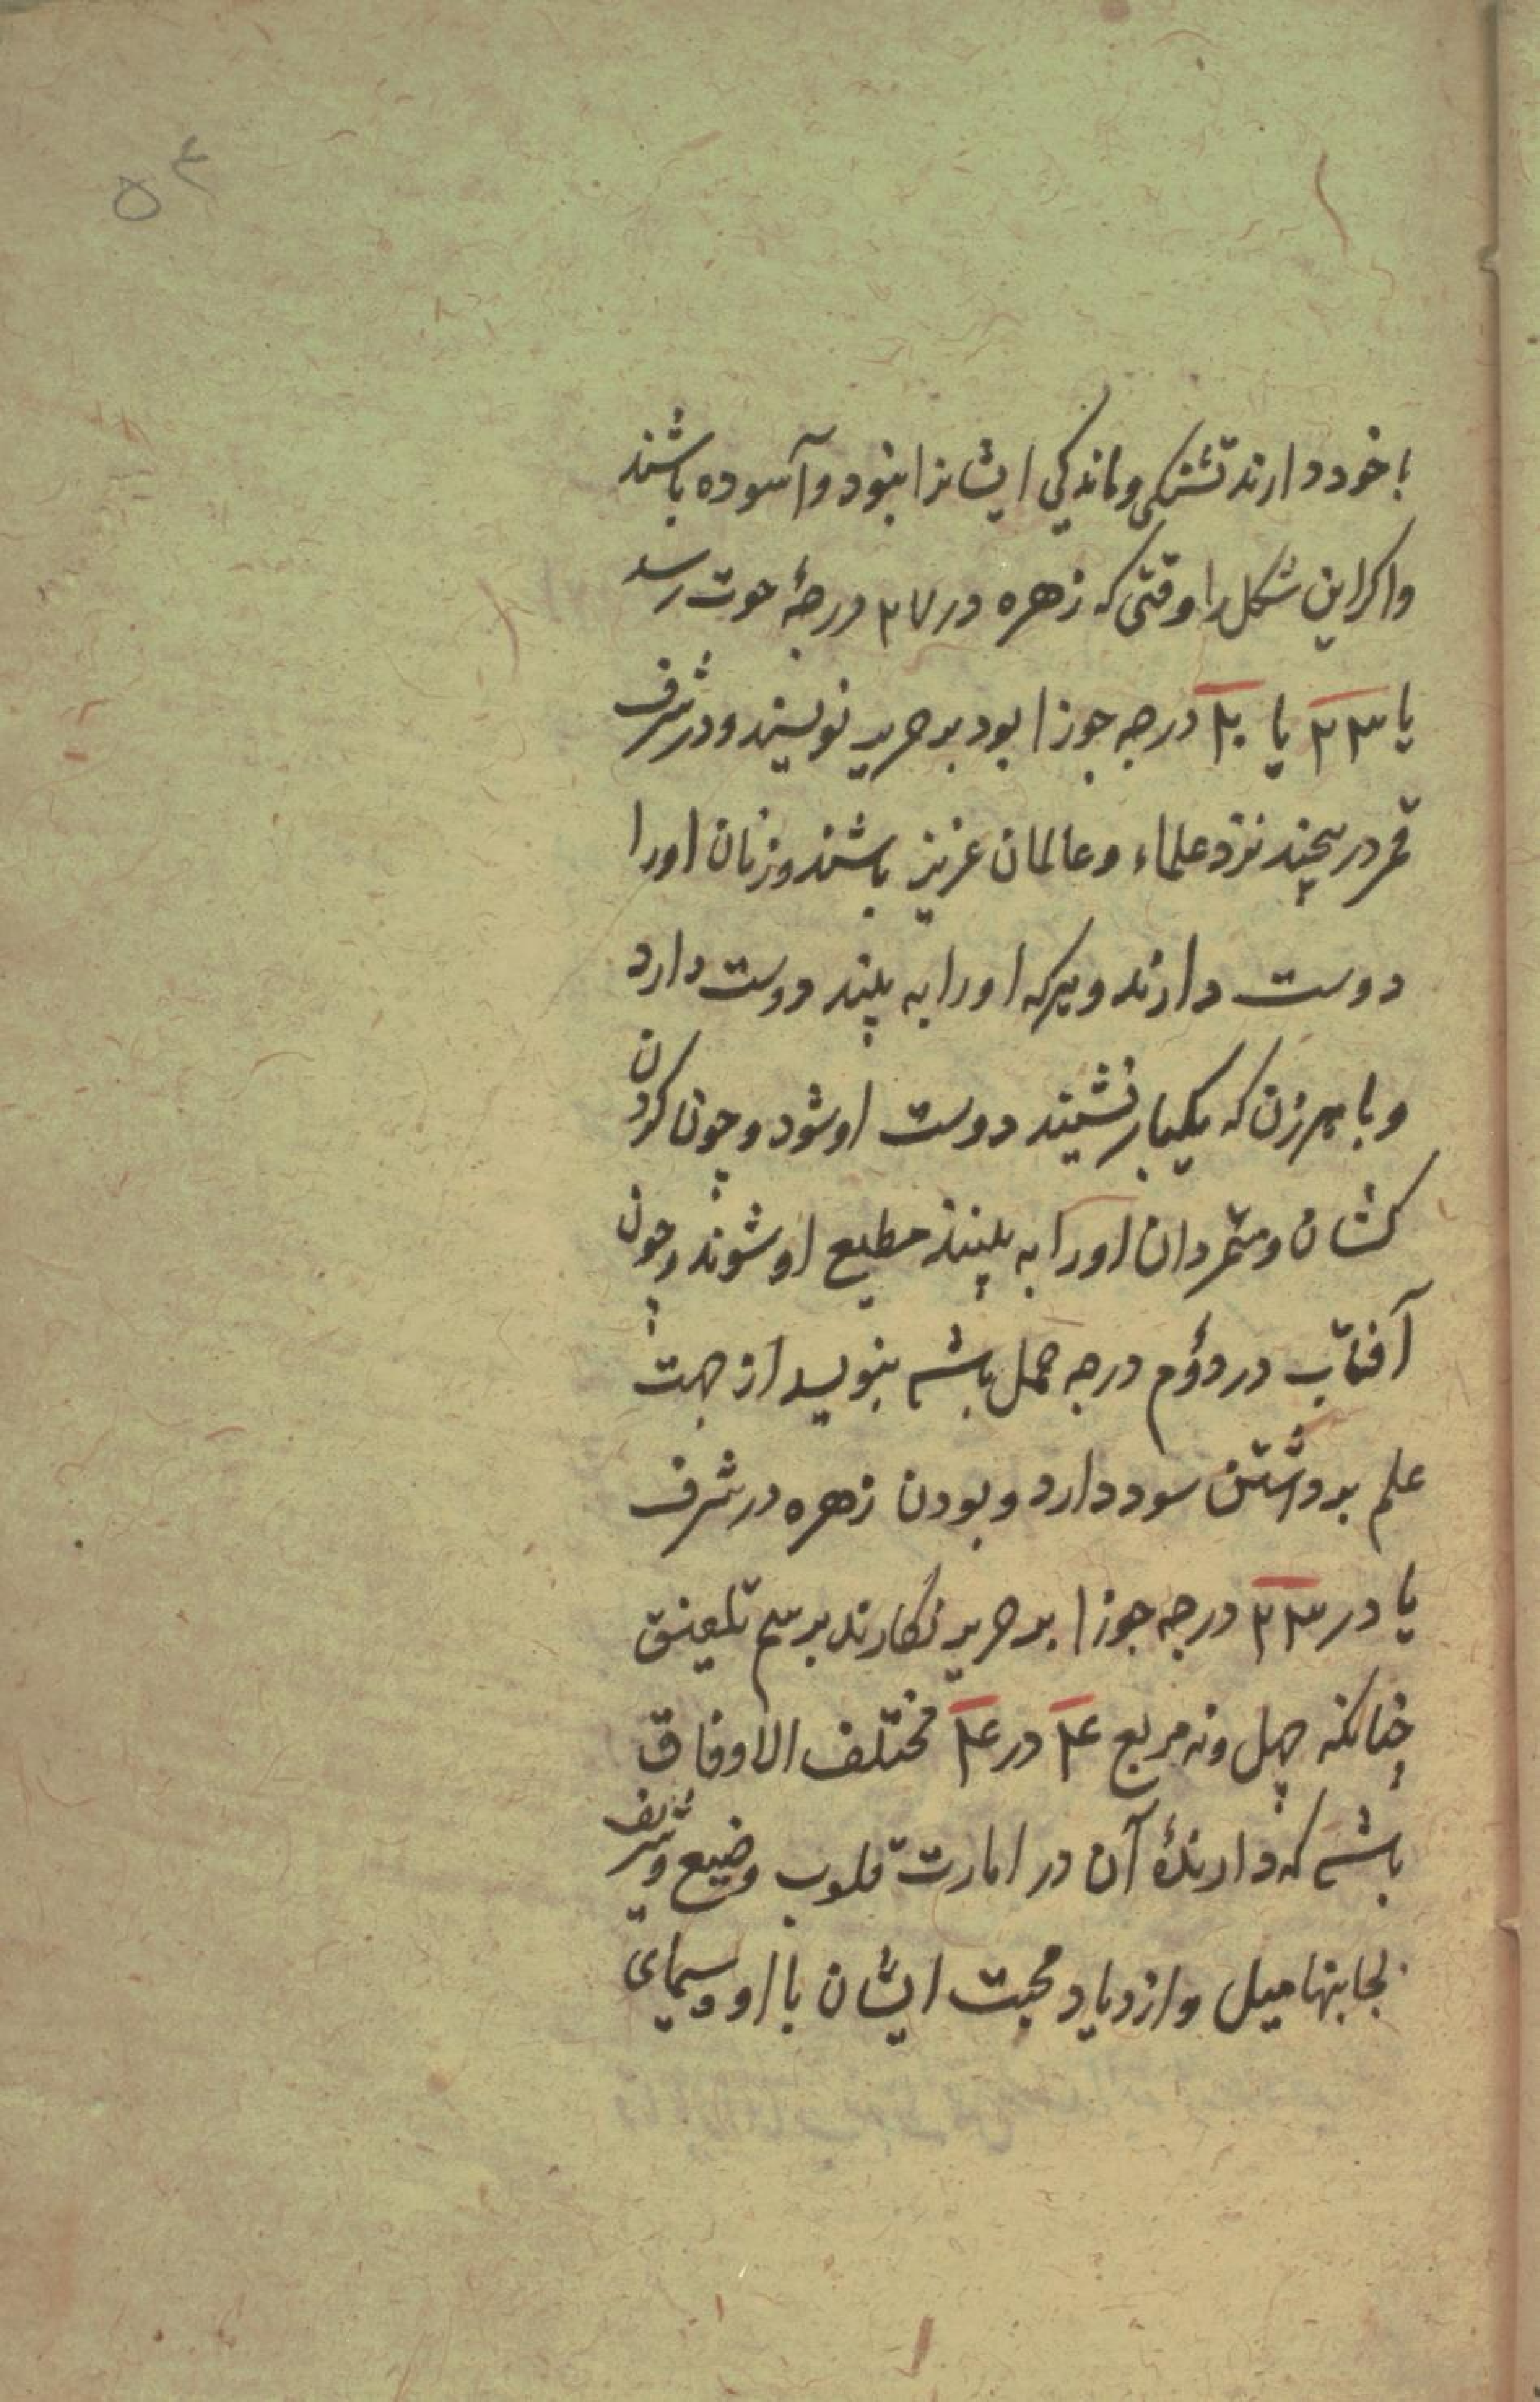 ۵۴
با خود دارند تشنکی و ماندکی ایشانرا نبود و آسوده باشند
واکر این شکل را وقتی که زهره در ۲۷ درجهٔ حوت رسد
یا ۲۳ یا ۳۰ درجه جوزا بود بر حریر نویسند و در شرف
قمر در پیچند نزد علماء و عالمان عزیز باشند و زنان او را
دوست دارند و هرکه او را به بیند دوست دارد
و با هر زن که یکبار نشیند دوست او شود و چون کردن
کشان و متمردان او را به بینند مطیع او شوند و چون
آفتاب در دوم درجه حمل باشد بنویسد از جهت
علم برداشتن سود دارد و بودن زهره در شرف
یا در ۲۳ درجه جوزا بر حریر نکارند برسم تلفیق
چنانکه چهل و نه مربع ۴ در ۴ مختلف الاوفاق
باشد که دارندهٔ آن در امارت قلوب وضیع و شریف
بجا بنهامیل و ازدیاد محبت ایشان با او و سیمای